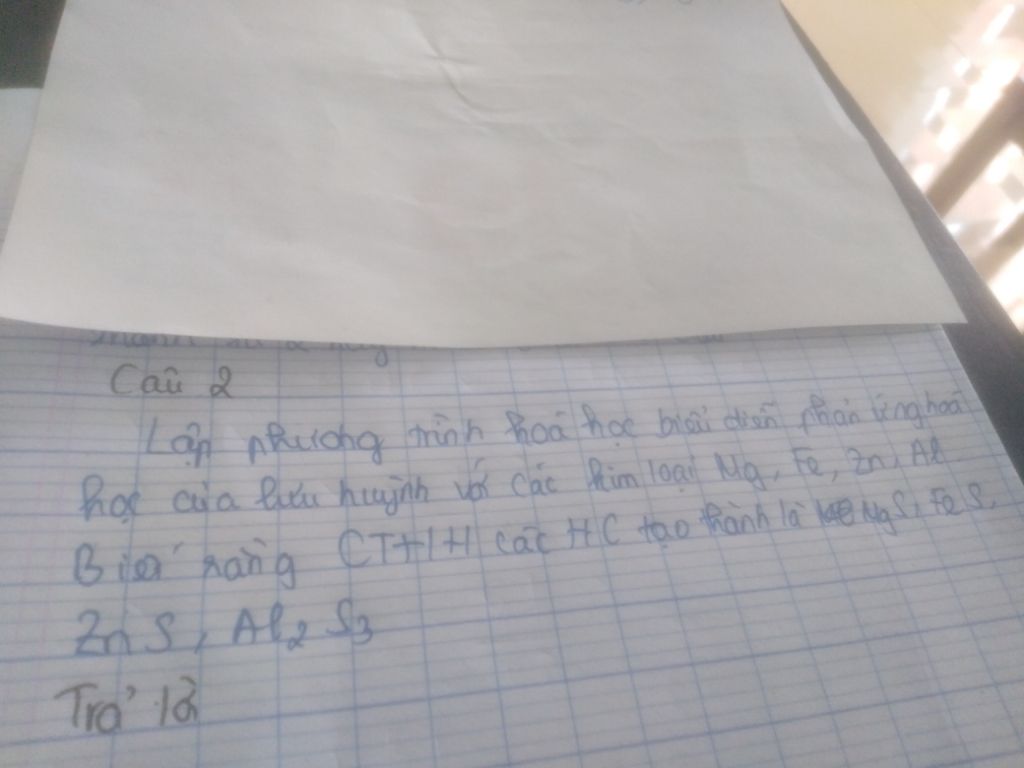 Câu 2
Lập phương trình hoá học biểu diễn phản ứng hoá
học của lưu huỳnh với các kim loại Mg, Fe, Zn, Al
Biết rằng CTHH các HC tạo thành là MgS, FeS,
ZnS, Al2S3
Trả lời